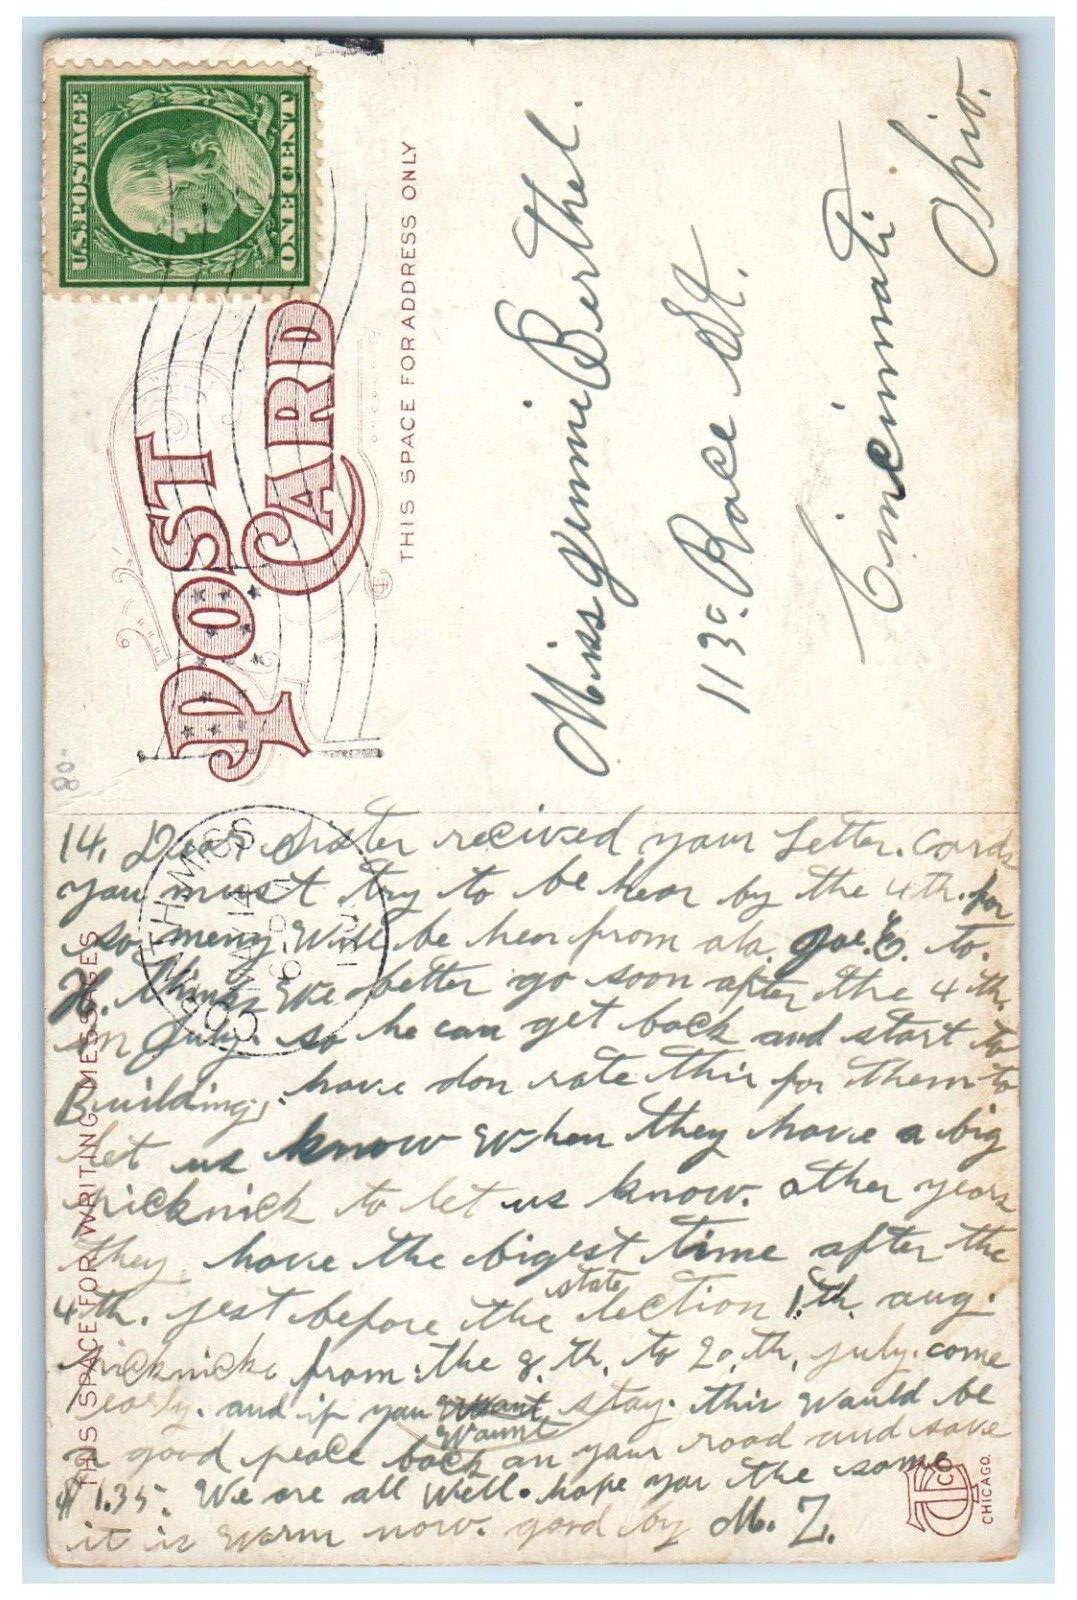 U.S. POSTAGE
ONE CENT
POST CARD
THIS SPACE FOR ADDRESS ONLY
Miss Jennie Berthel.
113 Race St.
Cincinnati
Ohio.
80-
MISS
THIS SPACE FOR WRITING MESSAGES
14. Dear Sister recived your Letter. Cards
you must try to be hear by the 4th. for
so meny Will be hear from ala. Joe. E. to.
H. thinks We better go soon after the 4th.
in July. so he can get back and start to
Building, have don rate this for them to
let us know When they have a big
picknick to let us know. other years
they have the bigest time after the
4th. jest before the state lection 1.th. aug.
picknicks from the 8.th. to 20.th. july. come
early. and if you Waunt stay. this Would be
a good peace back on your road and save
$1.35. We are all Well. hope you the same
it is Warm now. good by M. Z.
TCo
CHICAGO.